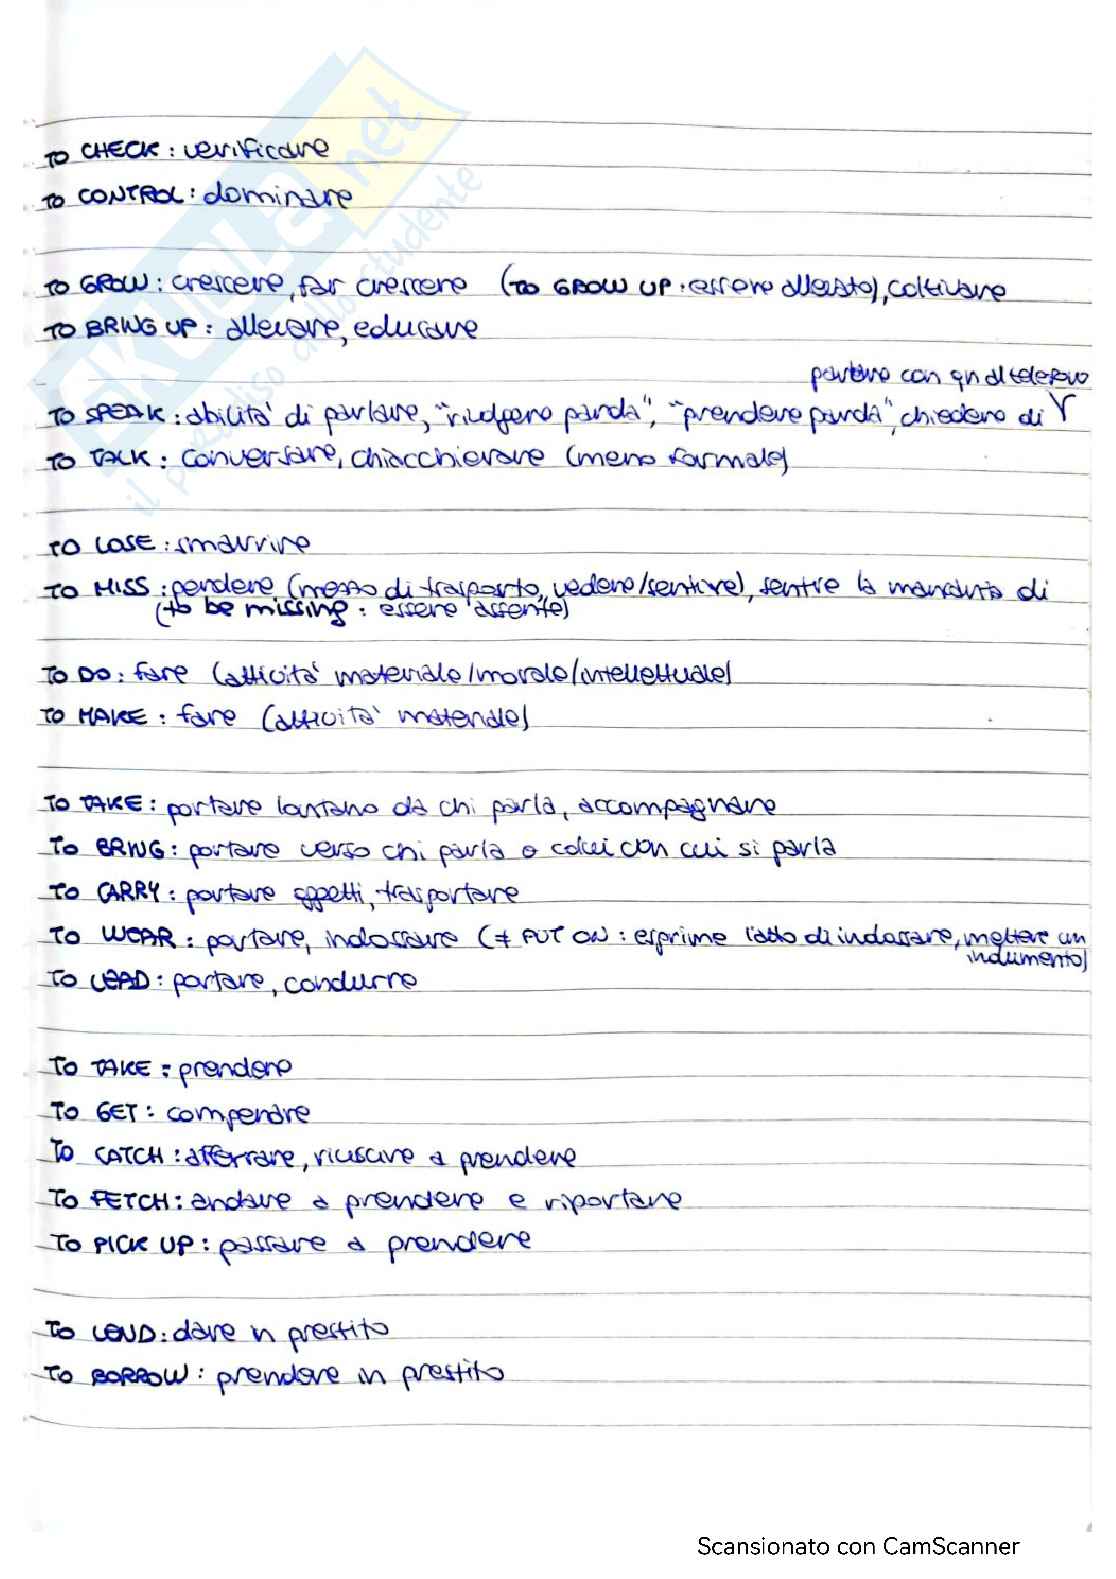 TO CHECK : verificare
TO CONTROL : dominare
TO GROW : crescere, far crescere (TO GROW UP : essere allevato), coltivare
TO BRING UP : allevare, educare
parlare con qn al telefono
TO SPEAK : abilità di parlare, "rivolgere parola", "prendere parola", chiedere di
TO TALK : conversare, chiacchierare (meno formale)
TO LOSE : smarrire
TO MISS : perdere (mezzo di trasporto, vedere/sentire), sentire la mancanza di
(to be missing : essere assente)
TO DO : fare (attività materiale/morale/intellettuale)
TO MAKE : fare (attività materiale)
TO TAKE : portare lontano da chi parla, accompagnare
TO BRING : portare verso chi parla o colui con cui si parla
TO CARRY : portare oggetti, trasportare
TO WEAR : portare, indossare (≠ PUT ON : esprime l'atto di indossare, mettere un
indumento)
TO LEAD : portare, condurre
TO TAKE : prendere
TO GET :
TO CATCH : afferrare, riuscire a prendere
TO FETCH : andare a prendere e riportare
TO PICK UP : passare a prendere
TO LEND : dare in prestito
TO BORROW : prendere in prestito
SKUOLA.net
il paradiso dello studente
Scansionato con CamScanner